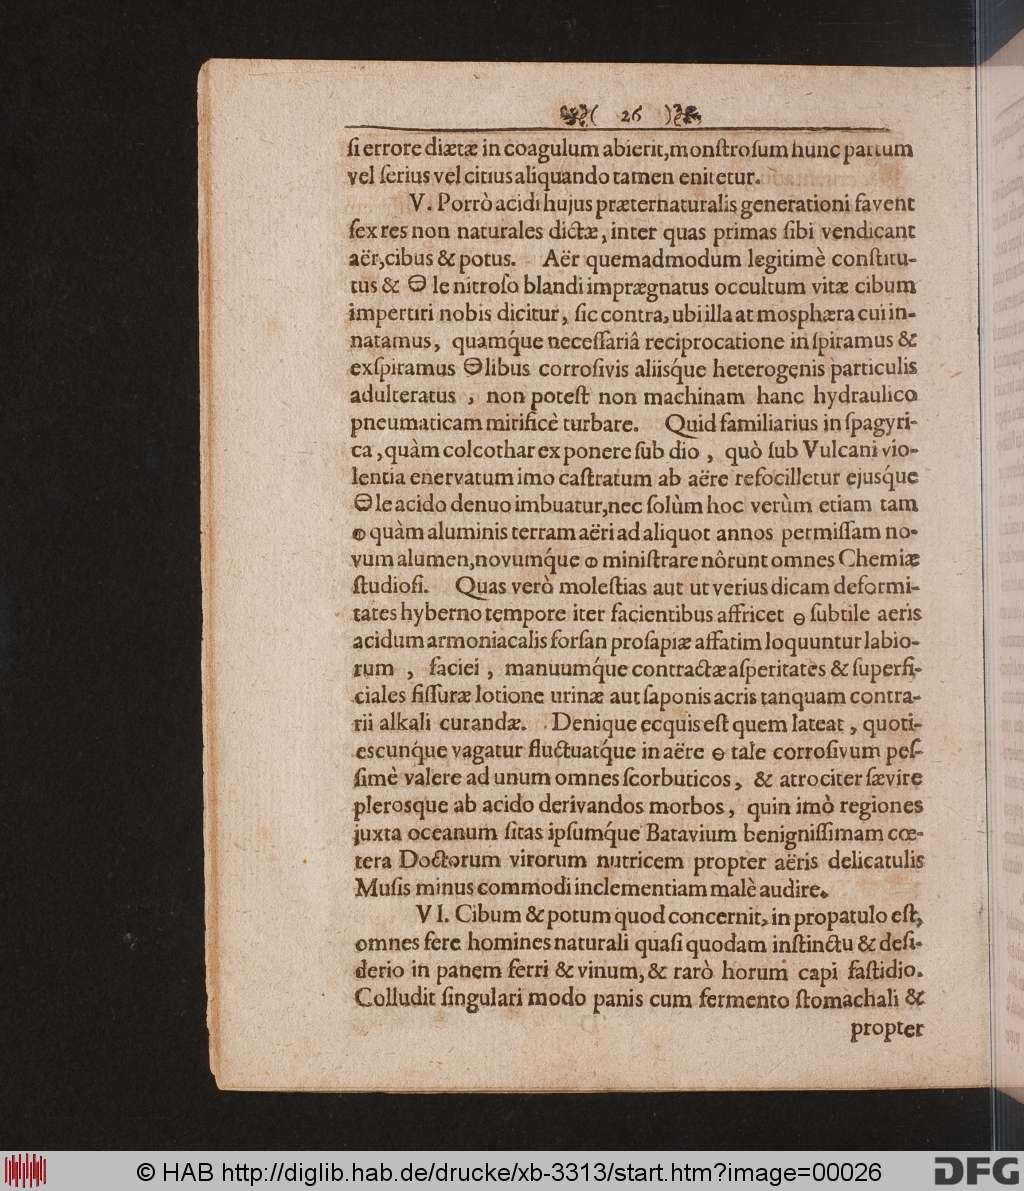 ( 26 )
ſi errore diætæ in coagulum abierit, monſtroſum hunc partum
vel ſerius vel citius aliquando tamen enitetur.
V. Porrò acidi hujus præternaturalis generationi favent
ſex res non naturales dictæ, inter quas primas ſibi vendicant
aër, cibus & potus. Aër quemadmodum legitimè conſtitu-
tus & 🜔 le nitroſo blandi imprægnatus occultum vitæ cibum
impertiri nobis dicitur, ſic contra, ubi illa atmosphæra cui in-
natamus, quamq́ue neceſſariâ reciprocatione inſpiramus &
exſpiramus 🜔libus corroſivis aliisq́ue heterogenis particulis
adulteratus, non poteſt non machinam hanc hydraulico
pneumaticam mirificè turbare. Quid familiarius in ſpagyri-
ca, quàm colcothar exponere ſub dio, quò ſub Vulcani vio-
lentia enervatum imo caſtratum ab aëre refocilletur ejusq́ue
🜔le acido denuo imbuatur, nec ſolùm hoc verùm etiam tam
🜕 quàm aluminis terram aëri ad aliquot annos permiſſam no-
vum alumen, novumq́ue 🜕 miniſtrare nôrunt omnes Chemiæ
ſtudioſi. Quas verò moleſtias aut ut verius dicam deformi-
tates hyberno tempore iter facientibus affricet 🜔 ſubtile aeris
acidum armoniacalis forſan proſapiæ affatim loquuntur labio-
rum, faciei, manuumq́ue contractæ aſperitates & ſuperfi-
ciales fiſſuræ lotione urinæ aut ſaponis acris tanquam contra-
rii alkali curandæ. Denique ecquis eſt quem lateat, quoti-
escunq́ue vagatur fluctuatq́ue in aëre 🜔 tale corroſivum peſ-
ſimè valere ad unum omnes ſcorbuticos, & atrociter ſævire
plerosque ab acido derivandos morbos, quin imò regiones
juxta oceanum ſitas ipſumq́ue Batavium benigniſſimam cœ-
tera Doctorum virorum nutricem propter aëris delicatulis
Muſis minus commodi inclementiam malè audire.
VI. Cibum & potum quod concernit, in propatulo eſt,
omnes fere homines naturali quaſi quodam inſtinctu & deſi-
derio in panem ferri & vinum, & rarò horum capi faſtidio.
Colludit ſingulari modo panis cum fermento ſtomachali &
propter
© HAB http://diglib.hab.de/drucke/xb-3313/start.htm?image=00026
DFG